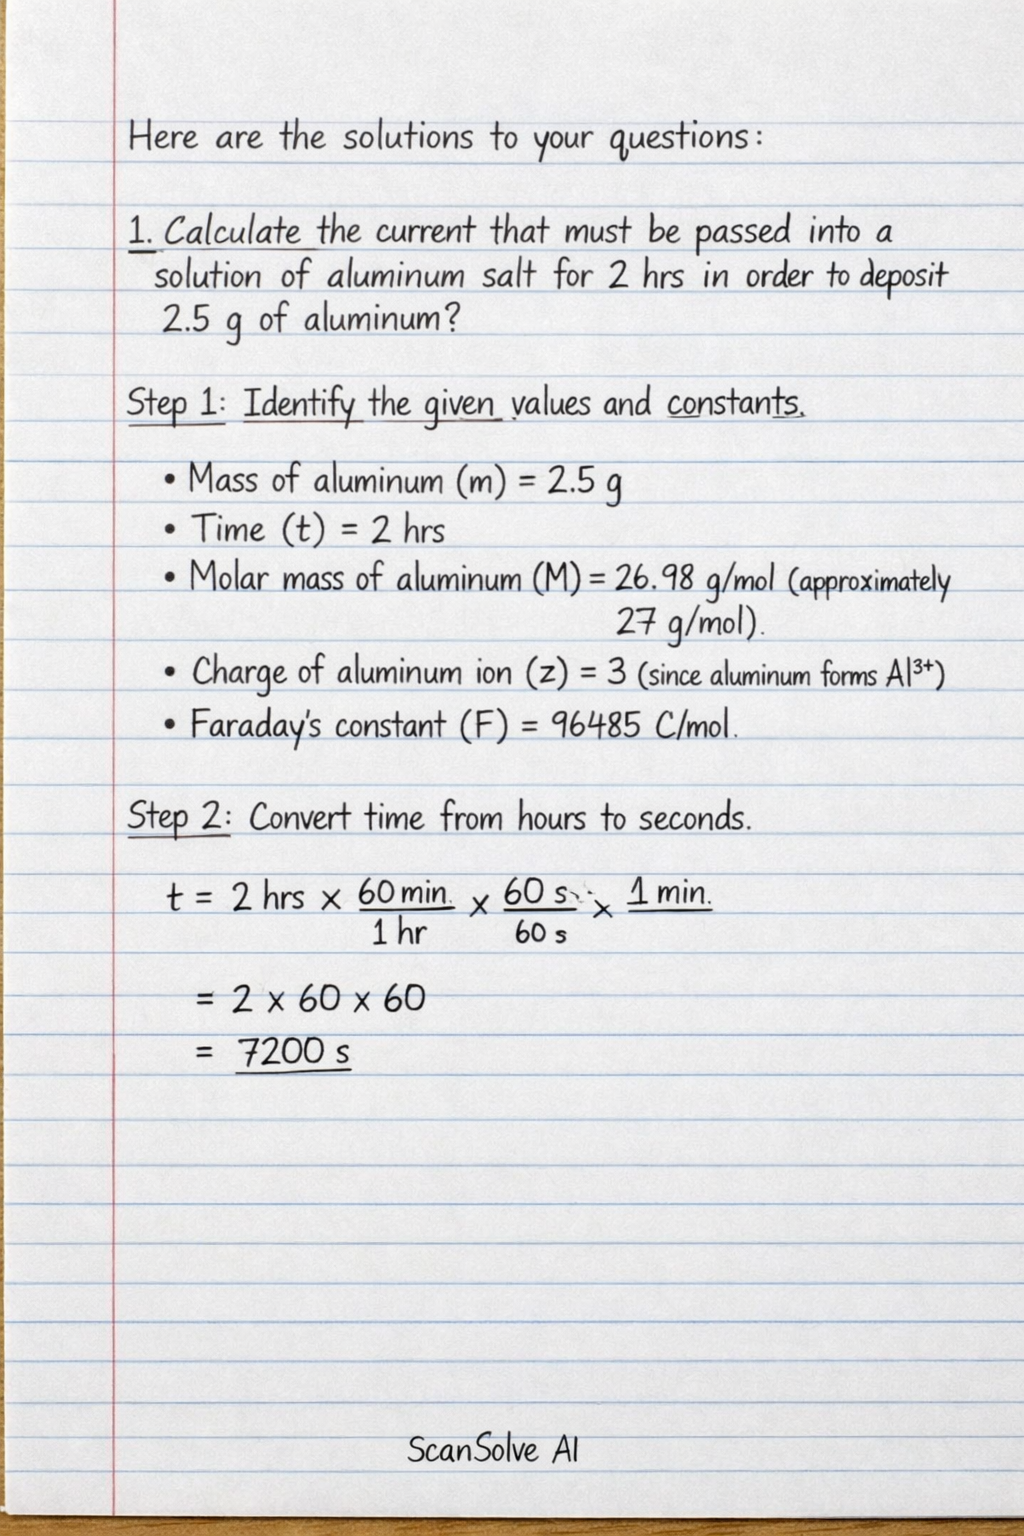 Here are the solutions to your questions:
1. Calculate the current that must be passed into a
solution of aluminum salt for 2 hrs in order to deposit
2.5 g of aluminum?
Step 1: Identify the given values and constants.
• Mass of aluminum (m) = 2.5 g
• Time (t) = 2 hrs
• Molar mass of aluminum (M) = 26.98 g/mol (approximately
27 g/mol).
• Charge of aluminum ion (z) = 3 (since aluminum forms Al³⁺)
• Faraday's constant (F) = 96485 C/mol.
Step 2: Convert time from hours to seconds.
t = 2 hrs × 60 min. × 60 s × 1 min.
1 hr 60 s
= 2 × 60 × 60
= 7200 s
ScanSolve AI